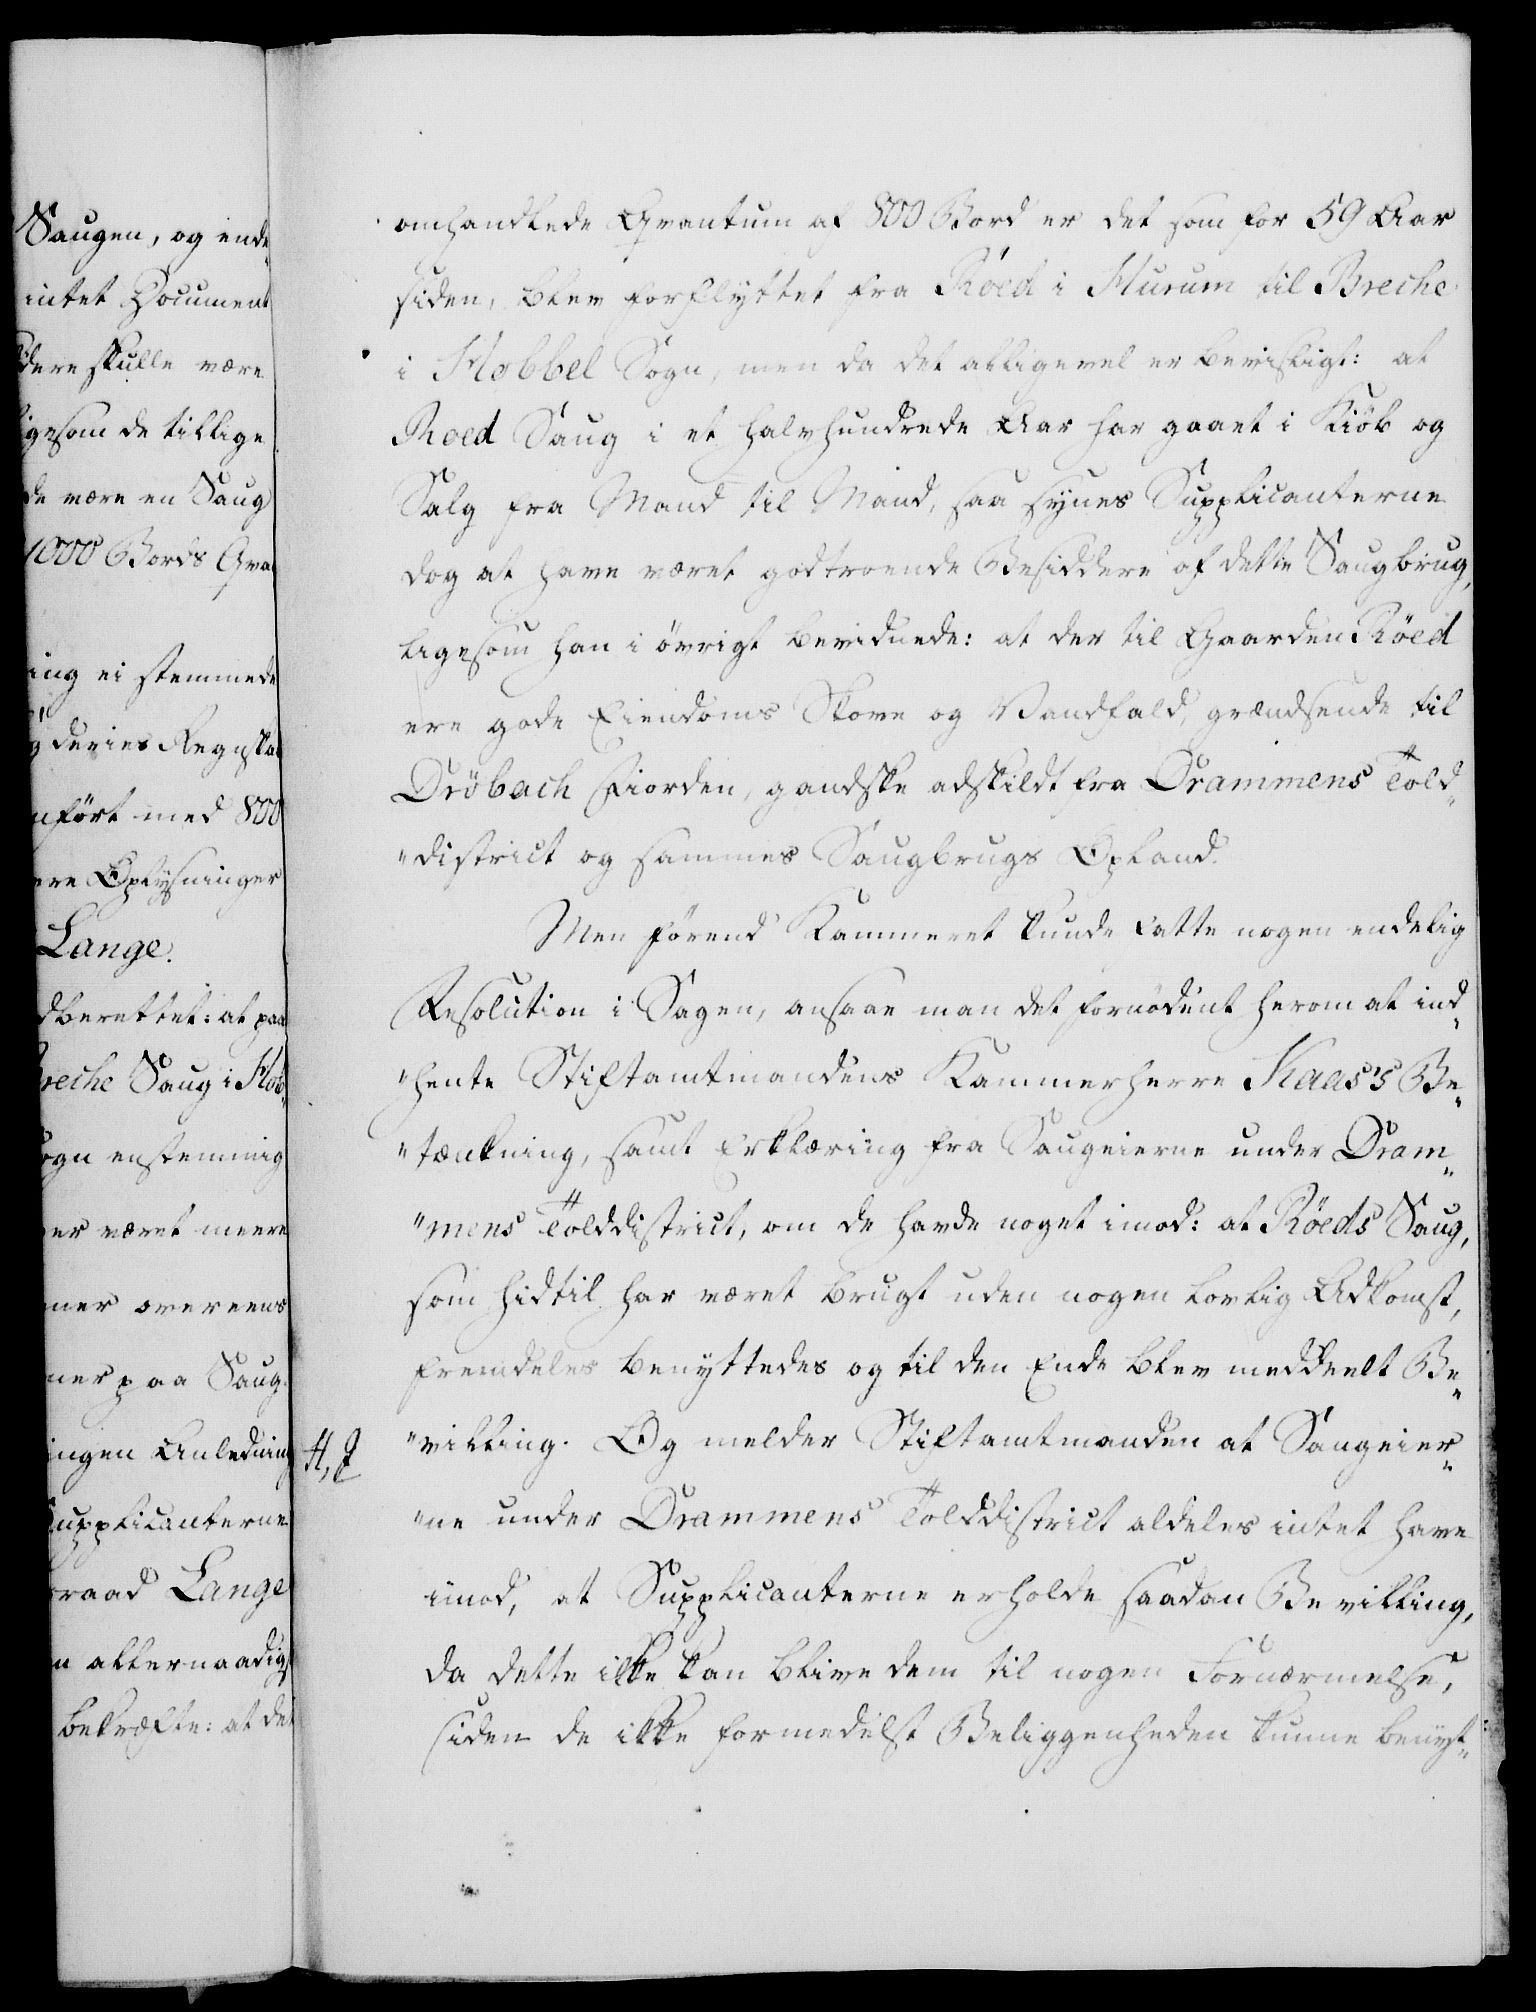 Saugen, og ende„
intet Document
dere skulle være
igesom de tillige
de være en Saug
1000 Bords Qva
ing ei stemmede
g deries Regnska
nført med 800
ere Oplysninger
Lange.
dberettet: at paa
reche Saug i Hob„
ogn enstemmig
er været meere
ner overeens
ner paa Saug
ingen Anledning
Supplicanterne
raad Lange
n allernaadigst
bekræfte: at det
omhandlede Qvantum af 800 Bord er det som for 59 Aar
siden, blev forflyttet fra Röed i Hurum til Breche
i Hobbel Sogn, men da det alligevel er bevisligt: at
Roed Saug i et halvhundrede Aar har gaaet i Kiöb og
Salg fra Mand til Mand, saa synes Supplicanterne
dog at have været godtroende Besiddere af dette Saugbrug,
ligesom han i övrigt bevidnede: at der til Gaarden Röed
ere gode Eiendoms Skove og Vandfald, grændsende til
Dröbach Fiorden, gandske adskildt fra Drammens Told„
„district og sammes Saugbrugs Opland.
Men förend Kammeret kunde fatte nogen endelig
Resolution i Sagen, ansaae man det fornödent herom at ind„
„hente Stiftamtmandens Kammerherre Kaas's Be„
„tænkning, samt Erklæring fra Saugeierne under Dram„
„mens Tolddistrict, om de havde noget imod: at Röeds Saug,
som hidtil har været brugt uden nogen lovlig Adkomst,
fremdeles benyttedes og til den Ende blev meddeelt Be„
H, J
„villing. Og melder Stiftamtmanden at Saugeier„
„ne under Drammens Tolddistrict aldeles intet have
imod, at Supplicanterne erholde saadan Bevilling,
da dette ikke kan blive dem til nogen Fornærmelse,
siden de ikke formedelst Beliggenheden kunne benyt„